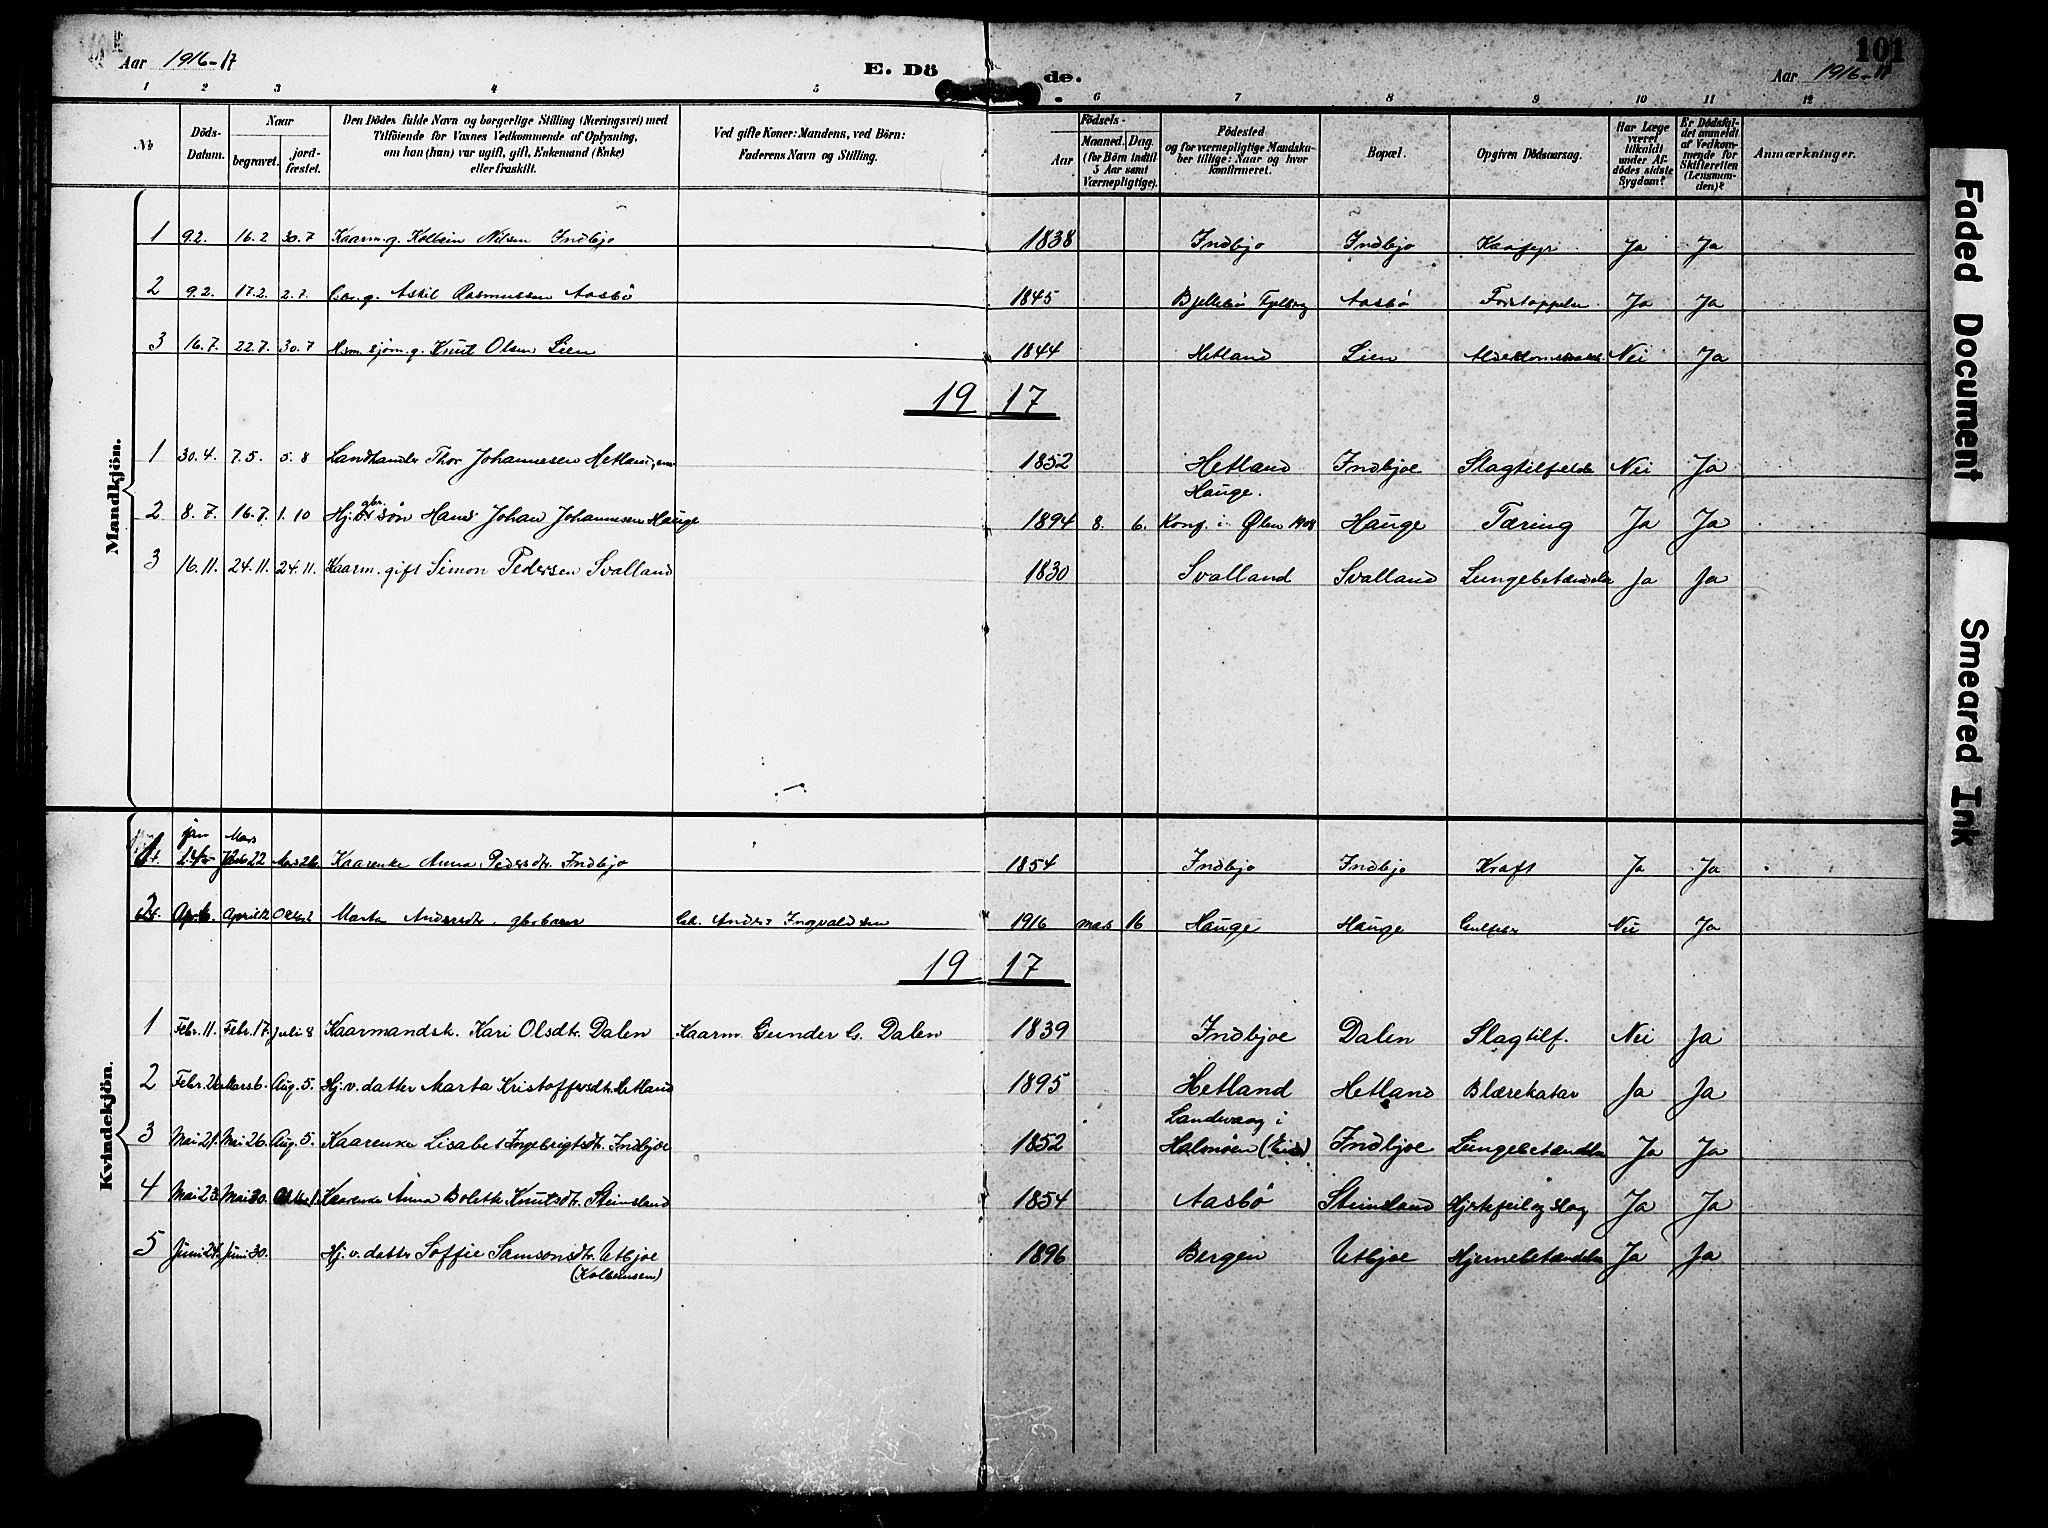 Aar 1916-17
E. Döde.
101
Aar 1916-17
1 2 3 4 5 6 7 8 9 10 11 12
No
Döds-Datum.
Naar
begravet.
jord-fæstet.
Den Dödes fulde Navn og borgerlige Stilling (Næringsvei) med
Tilföiende for Voxnes Vedkommende af Oplysning,
om han (hun) var ugift, gift, Enkemand (Enke)
eller fraskilt.
Ved gifte Koner: Mandens, ved Börn:
Faderens Navn og Stilling.
Födsels-
Aar
Maaned. Dag.
(for Börn indtil
5 Aar samt
Værnepligtige).
Födested
og for værnepligtige Mandska-
ber tillige: Naar og hvor
konfirmeret.
Bopæl.
Opgiven Dödsaarsag.
Har Læge
været
tilkaldt
under Af-
dödes sidste
Sygdom?
Er Dödsfal-
det anmeldt
af Vedkom-
mende for
Skifteretten
(Lensman-
den)?
Anmærkninger.
Mandkjön.
1 9.2. 16.2 30.7 Kaarm. g. Kolbein Nilsen Indbjo 1838 Indbjo Indbjo Ja Ja
2 9.2. 17.2. 2.7. g. Askil Rasmussen Aasbö 1845 Aasbö Forstoppelse Ja Ja
3 16.7. 22.7. 30.7 Hsm. sjöm. g. Knut Olsen Lien 1844 Hetland Lien Nei Ja
19 17
1 30.4. 7.5. 5.8 Landhandler Thor Johannesen Hetland, 1852 Hetland Indbjoe Slagtilfelde Nei Ja
2 8.7. 16.7. 1.10 Hj. gbr. sön Hans Johan Johannesen Hauge 1894 8. 6. Hauge. Konf. i Ølen 1908 Hauge Tæring Ja Ja
3 16.11. 24.11. 24.11. Kaarm. gift Simon Pedersen Svalland 1830 Svalland Svalland Lungebetændelse Ja Ja
Kvindekjön.
1 jan Mars 22 Kaarenke Anna Pedersdtr. Indbjo 1854 Indbjo Indbjo Kræft Ja Ja
2. Apr. 6. April 12 Marta Andersdtr. gbr barn Gd. Anders Ingvaldsen 1916 mars 16 Hauge Hauge Nei Ja
19 17
1 Febr. 11. Febr. 17. Juli 8 Kaarmandsk. Kari Olsdtr. Dalen Kaarm. Gunder G. Dalen 1839 Indbjoe Dalen Slagtilf. Nei Ja
2 Febr. 26. Mars 6. Aug. 5. Hj. v. datter Marta Kristoffersdtr. Hetland 1895 Hetland Hetland Blærekatar Ja Ja
3 Mai 21. Mai 26. Aug. 5. Kaarenke Lisabet Ingebrigtsdtr. Indbjoe 1852 Landvaag i Halmöen Indbjoe Lungebetændelse Ja Ja
4 Mai 23. Mai 30. Kaarenke Anna Bolette Knutsdtr. Steinsland 1854 Aasbö Steinsland Hjertefeil og slag Ja Ja
5 Juni 24. Juni 30. Hj. v. datter Soffie Samsonsdtr. Utbjoe (Kolbeinsen) 1896 Bergen Utbjoe Hjernebetændelse Ja Ja
Faded Document
Smeared Ink